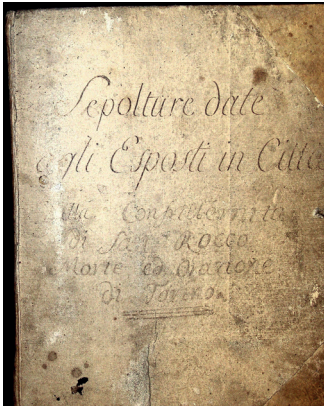 Sepolture date
agli Esposti in Città
alla Confraternita
di San Rocco
Morte, ed Orazione
di Torino.